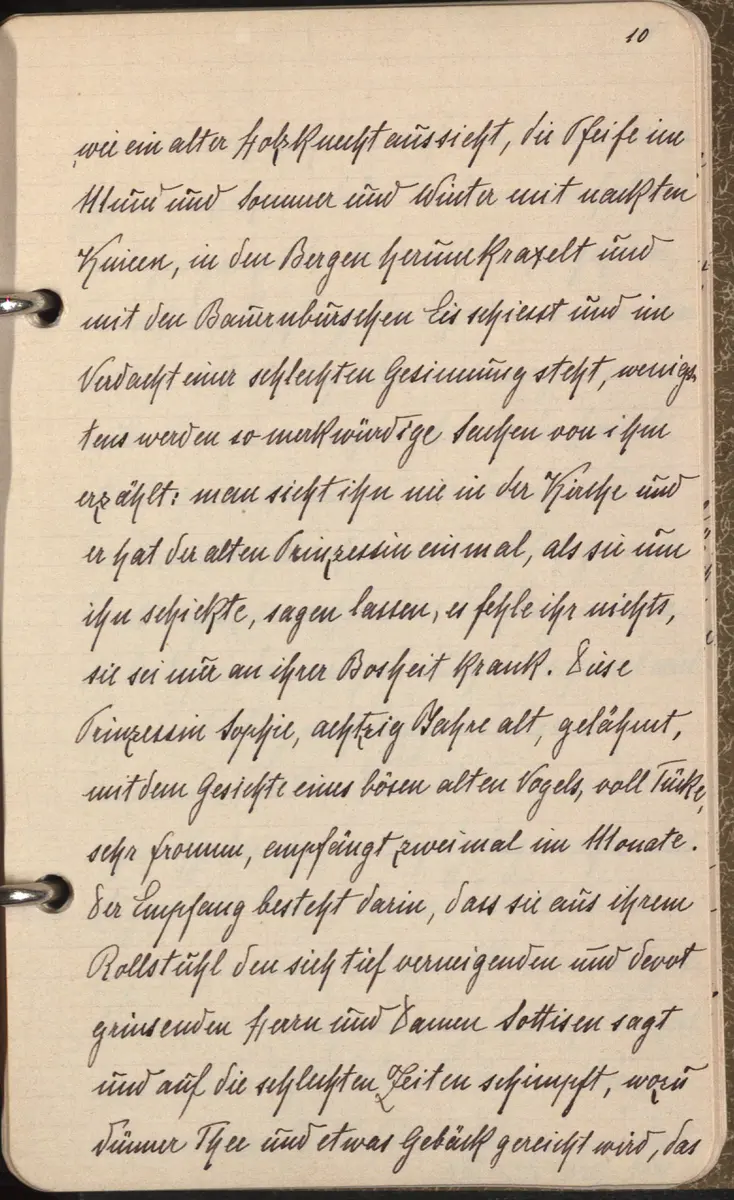 10
wie ein alter Holzknecht aussieht, die Pfeife im
Mund und Sommer und Winter mit nackten
Knieen, in den Bergen herumkraxelt und
mit den Bauernburschen Eis schiesst und im
Verdacht einer schlechten Gesinnung steht, wenigs-
tens werden so merkwürdige Sachen von ihm
erzählt: man sieht ihn nie in der Kirche und
er hat der alten Prinzessin einmal, als sie um
ihn schickte, sagen lassen, es fehle ihr nichts,
sie sei nur an ihrer Bosheit krank. Diese
Prinzessin Sophie, achtzig Jahre alt, gelähmt,
mit dem Gesichte eines bösen alten Vogels, voll Tücke,
sehr fromm, empfängt zweimal im Monate.
Der Empfang besteht darin, dass sie aus ihrem
Rollstuhl den sich tief verneigenden und devot
grinsenden Herrn und Damen Sottisen sagt
und auf die schlechten Zeiten schimpft, wozu
dünner Thee und etwas Gebäck gereicht wird, das